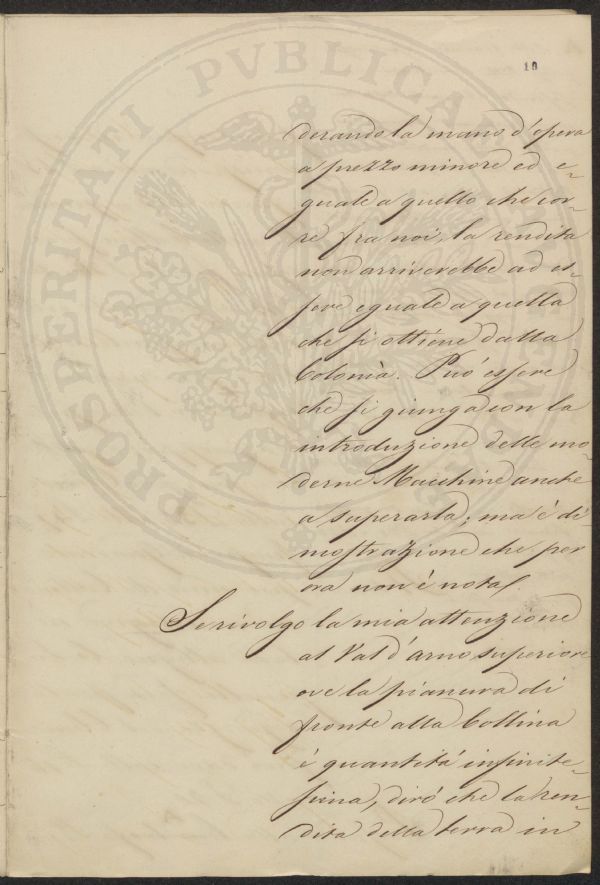 10
derando la mano d'opera
a prezzo minore ed e-
guale a quello, che cor-
re fra noi, la rendita
non arriverebbe ad es-
sere eguale a quella
che si ottiene dalla
Colonìa. Può essere
che si giunga con la
introduzione delle mo-
derne Macchine anche
a superarla; ma è di-
mostrazione che per
ora non è nota.
Se rivolgo la mia attenzione
al Val d'arno superiore
ove la pianura di
fronte alla Collina
è quantità infinite-
sima, dirò che la ren-
dita della terra in
PROSPERITATI PVBLICAE